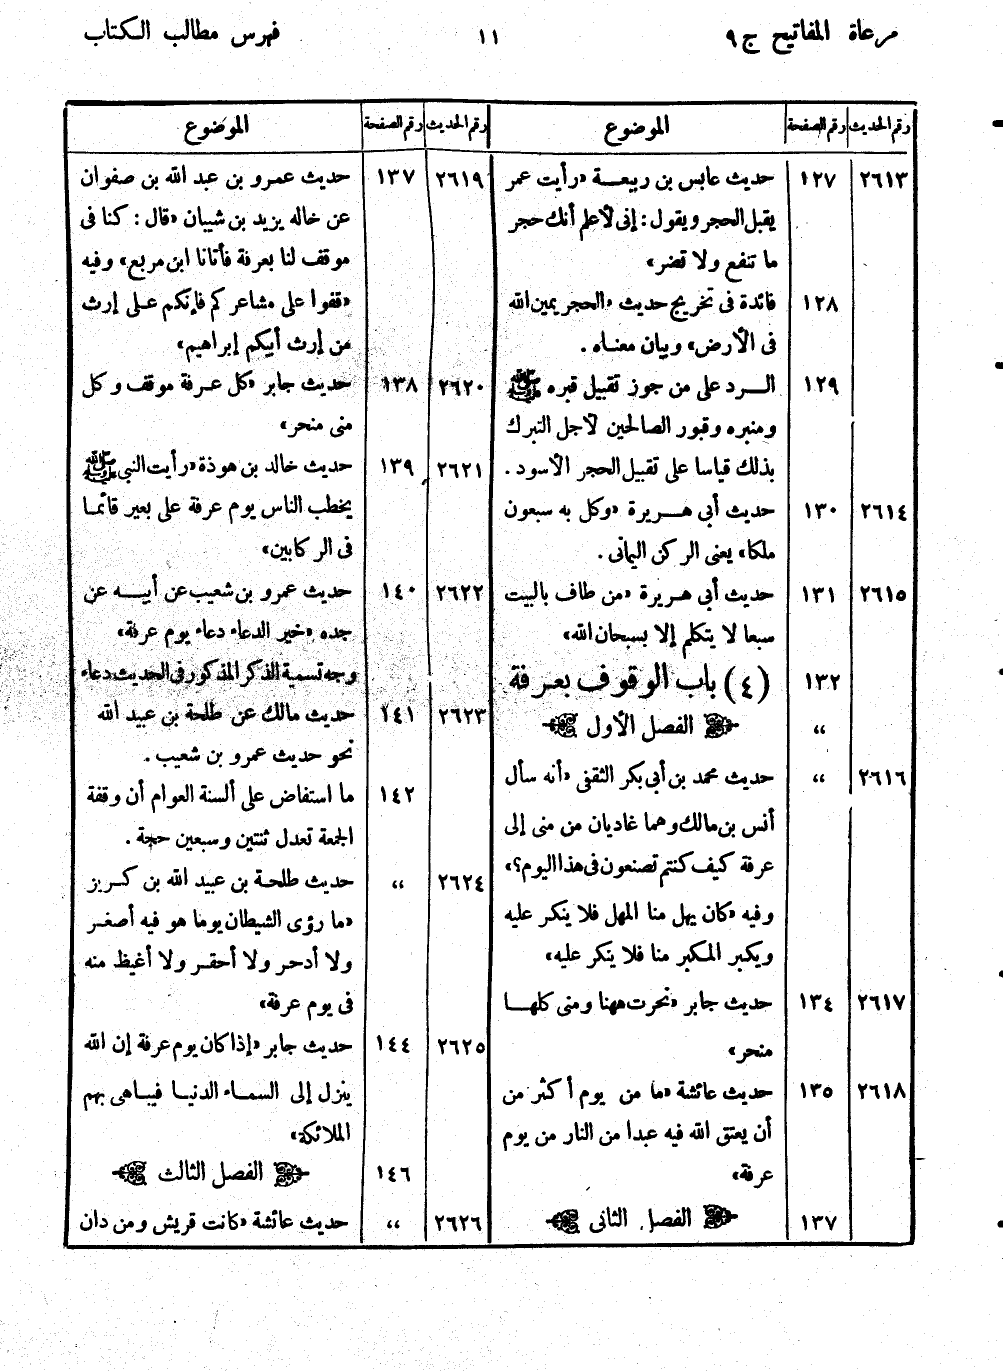 مرعاة المفاتيح ج ٩
١١
فهرس مطالب الكتاب
رقم الحديث رقم الصفحة الموضوع
٢٦١٣ ١٢٧ حديث عابس بن ربيعة «رأيت عمر
يقبل الحجر ويقول: إنى لأعلم أنك حجر
ما تنفع ولا تضر»
١٢٨ فائدة فى تخريج حديث «الحجر يمين الله
فى الأرض» وبيان معناه.
١٢٩ الرد على من جوز تقبيل قبره ﷺ
ومنبره وقبور الصالحين لأجل التبرك
بذلك قياسا على تقبيل الحجر الأسود.
٢٦١٤ ١٣٠ حديث أبى هريرة «وكل به سبعون
ملكا» يعنى الركن اليمانى.
٢٦١٥ ١٣١ حديث أبى هريرة «من طاف بالبيت
سبعا لا يتكلم إلا بسبحان الله»
١٣٢ (٤) باب الوقوف بعرفة
،، الفصل الأول
٢٦١٦ ،، حديث محمد بن أبى بكر الثقفى «أنه سأل
أنس بن مالك وهما غاديان من منى إلى
عرفة كيف كنتم تصنعون فى هذا اليوم؟»
وفيه «كان يهل منا المهل فلا ينكر عليه
ويكبر المكبر منا فلا ينكر عليه»
٢٦١٧ ١٣٤ حديث جابر «نحرت ههنا ومنى كلها
منحر»
٢٦١٨ ١٣٥ حديث عائشة «ما من يوم أكثر من
أن يعتق الله فيه عبدا من النار من يوم
عرفة»
١٣٧ الفصل الثانى
رقم الحديث رقم الصفحة الموضوع
٢٦١٩ ١٣٧ حديث عمرو بن عبد الله بن صفوان
عن خاله يزيد بن شيبان «قال: كنا فى
موقف لنا بعرفة فأتانا ابن مربع» وفيه
«قفوا على مشاعركم فإنكم على إرث
من إرث أبيكم إبراهيم»
٢٦٢٠ ١٣٨ حديث جابر «كل عرفة موقف وكل
منى منحر»
٢٦٢١ ١٣٩ حديث خالد بن هوذة «رأيت النبى ﷺ
يخطب الناس يوم عرفة على بعير قائما
فى الركابين»
٢٦٢٢ ١٤٠ حديث عمرو بن شعيب عن أبيه عن
جده «خير الدعاء دعاء يوم عرفة»
وجه تسمية الذكر المذكور فى الحديث دعاء
٢٦٢٣ ١٤١ حديث مالك عن طلحة بن عبيد الله
نحو حديث عمرو بن شعيب.
١٤٢ ما استفاض على ألسنة العوام أن وقفة
الجمعة تعدل ثنتين وسبعين حجة.
٢٦٢٤ ،، حديث طلحة بن عبيد الله بن كريز
«ما رؤى الشيطان يوما هو فيه أصغر
ولا أدحر ولا أحقر ولا أغيظ منه
فى يوم عرفة»
٢٦٢٥ ١٤٤ حديث جابر «إذا كان يوم عرفة إن الله
ينزل إلى السماء الدنيا فيباهى بهم
الملائكة»
١٤٦ الفصل الثالث
٢٦٢٦ ،، حديث عائشة «كانت قريش ومن دان